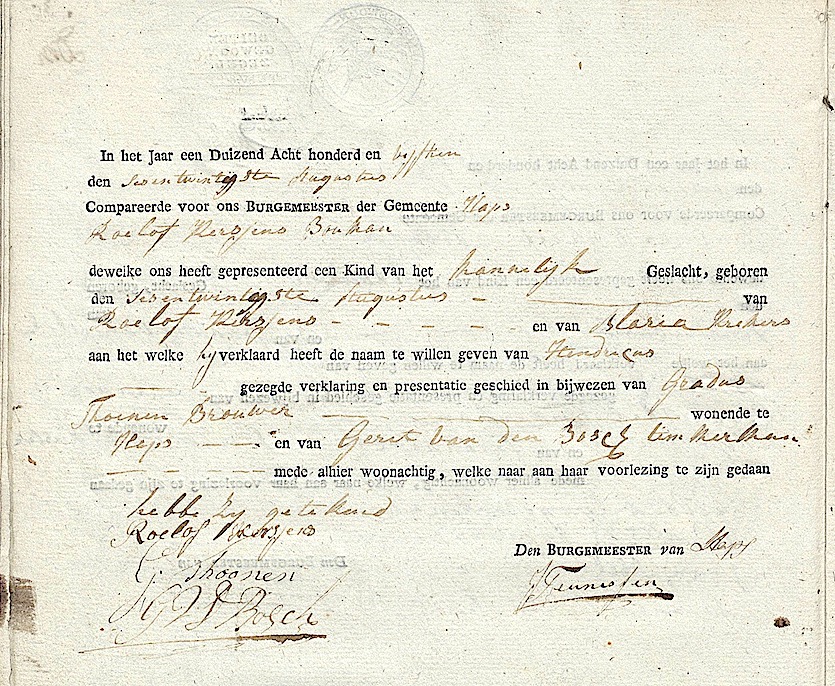 In het Jaar een Duizend Acht honderd en vyftien
den sesentwintigste Augustus
Compareerde voor ons BURGEMEESTER der Gemeente Haps
Roelof Kerssens Bouman
dewelke ons heeft gepresenteerd een Kind van het Mannelijk Geslacht, geboren
den sesentwintigste Augustus - van
Roelof Kerssens - - - - - en van Maria Krekers
aan het welke hy verklaard heeft de naam te willen geven van Hendricus
gezegde verklaring en presentatie geschied in bijwezen van Gradus
Thoenen Brouwer wonende te
Heps - - en van Gerit van den Bosch timmerman
mede alhier woonachtig, welke naar aan haar voorlezing te zijn gedaan
hebbe zy getekend
Roelof Kerssens
G. Thoonen
G V D Bosch
Den BURGEMEESTER van Haps